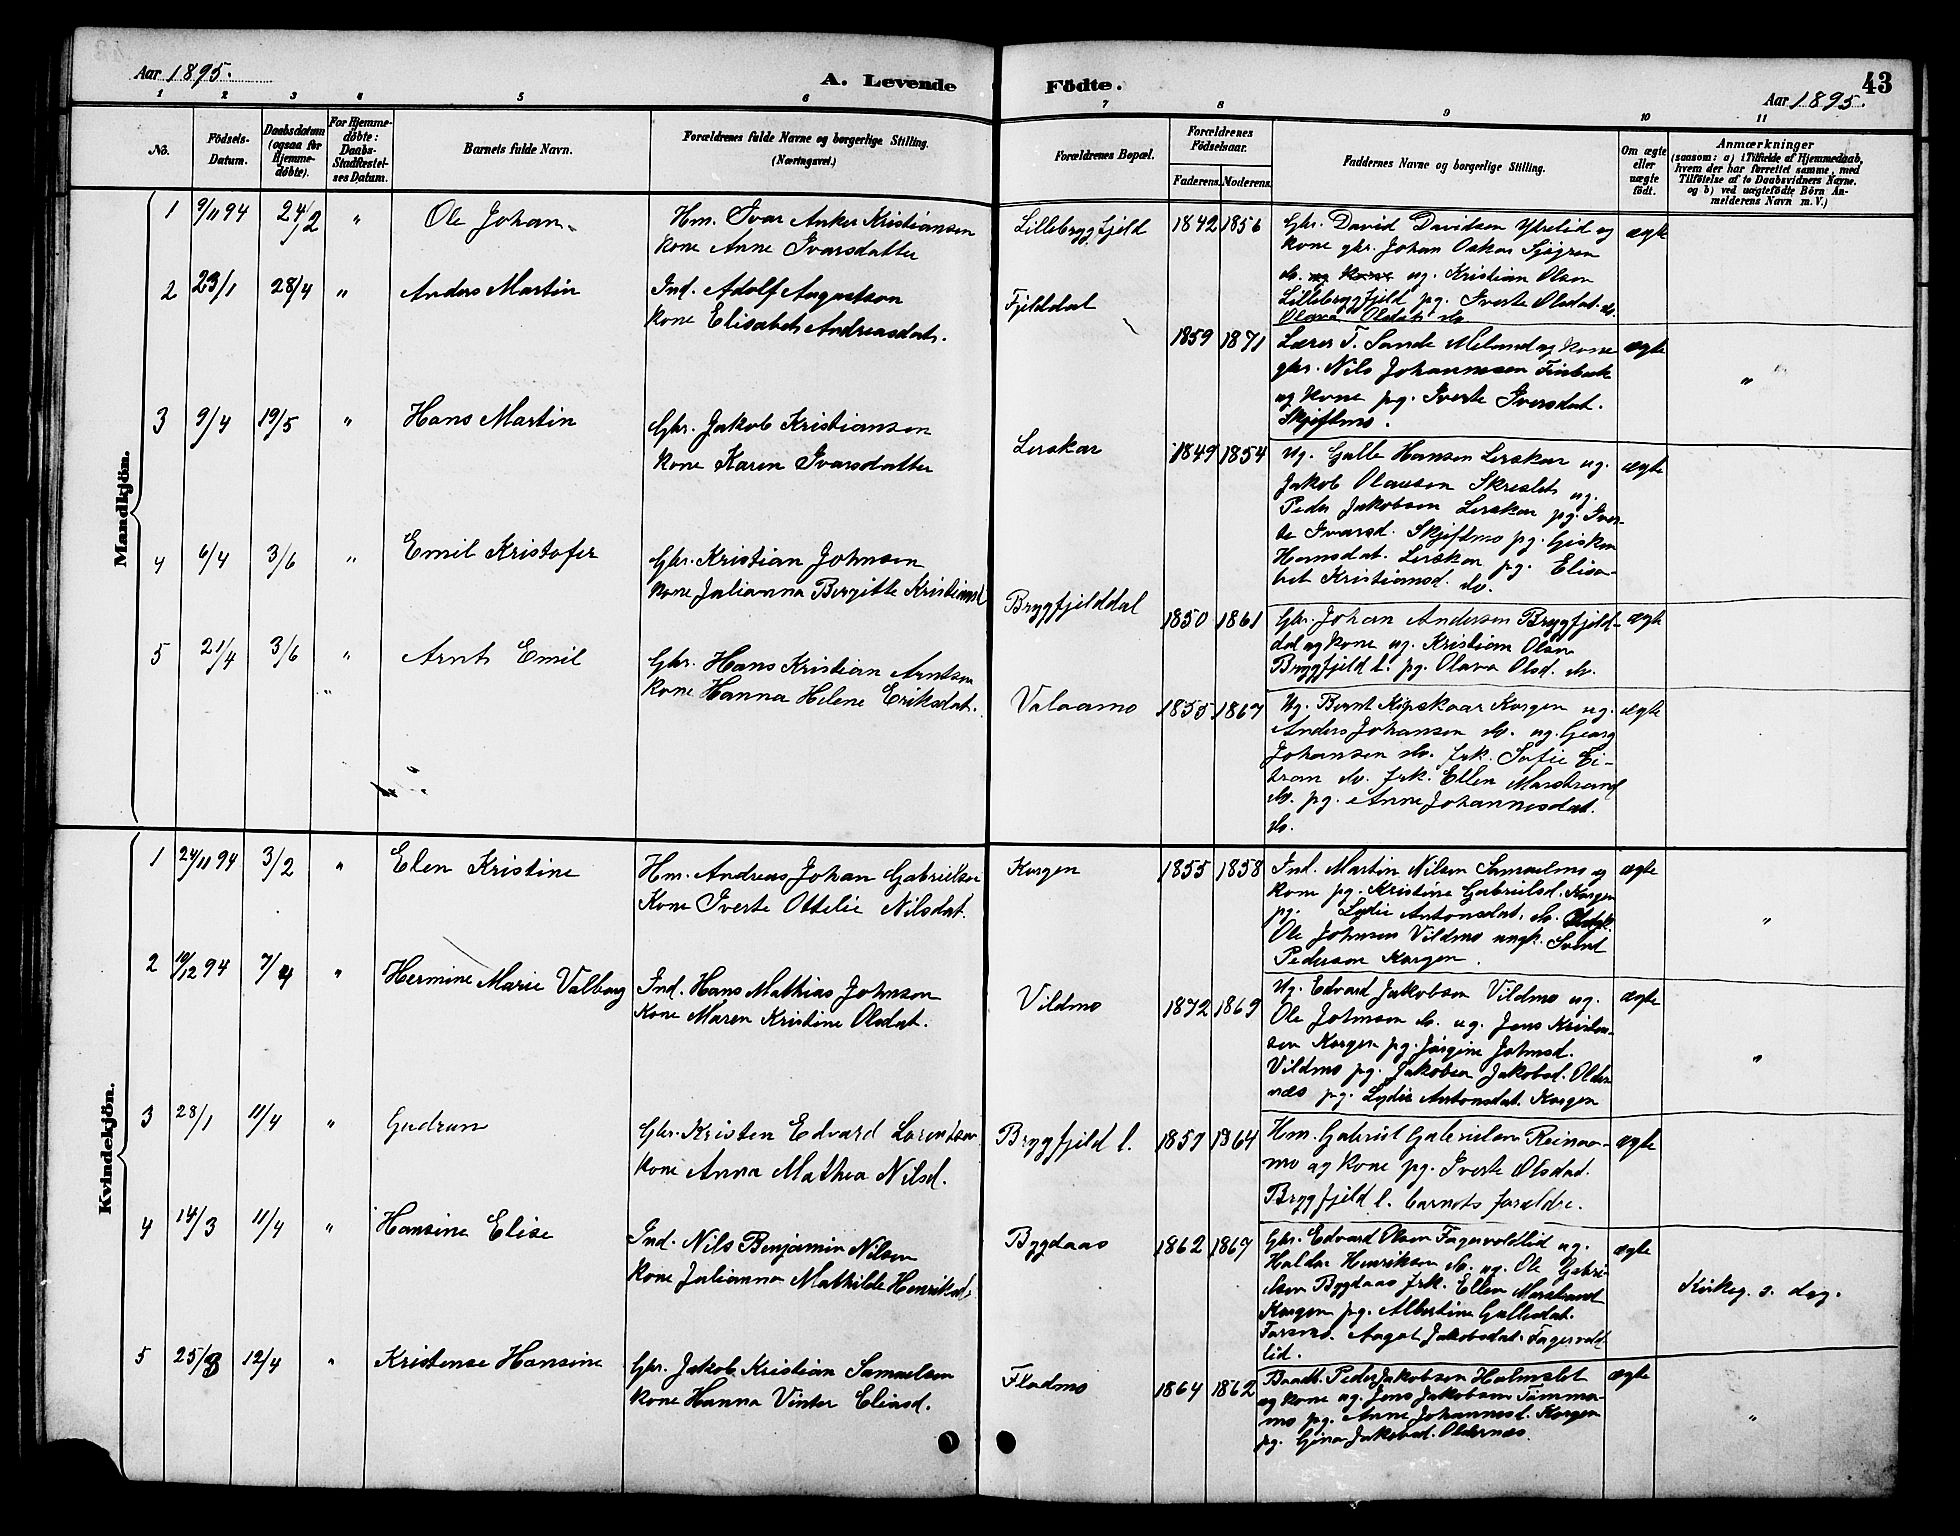 Aar 1895.
A. Levende Födte.
43
Aar 1895.
1 2 3 4 5 6 7 8 9 10 11
No.
Födsels-Datum.
Daabsdatum (ogsaa for Hjemmedöbte).
For Hjemmedöbte: Daabs-Stadfæstelses Datum.
Barnets fulde Navn.
Forældrenes fulde Navne og borgerlige Stilling. (Næringsvei.)
Forældrenes Bopæl.
Forældrenes Födselsaar.
Faderens. Moderens.
Faddernes Navne og borgerlige Stilling.
Om ægte eller uægte födt.
Anmærkninger
(saasom: a) i Tilfælde af Hjemmedaab, hvem der har forrettet samme, med Tilföielse af to Daabsvidners Navne, og b) ved uægtefödte Börn Anmelderens Navn m. V.)
Mandkjön.
1 9/11 94 24/2 " Ole Johan
Hm. Ivar Anker Kristiansen
kone Anne Ivarsdatter
Lillebryggfjeld 1842 1856
Gbr. David Davidsen Ytrelid og
kone gbr. Johan Oskar Sjögren
do. og kone ug. Kristian Olsen
Lillebryggfjeld pg. Iverte Olsdat. do.
Olava Olsdat. do
ægte
2 23/1 28/4 " Anders Martin
Ind. Adolf Augustson
kone Elisabet Andreasdat.
Fjelddal 1859 1871
Lærer T. Sande Meland og kone
gbr. Nils Johannesen Finbak
og kone pg. Iverte Iversdat.
Skjiftmo.
ægte "
3 9/4 19/5 " Hans Martin
Gbr. Jakob Kristiansen
kone Karen Ivarsdatter
Lerskar 1849 1854
Ug. Galle Hansen Lerskar ug.
Jakob Olausen Skreslet ug.
Peder Jakobsen Lerskar pg. Iver-
te Ivarsd. Skjiftmo pg. Gisken
Hansdat. Lerskar pg. Elisa-
bet Kristiansd. do.
ægte
4 6/4 3/6 " Emil Kristofer
Gbr. Kristian Johnsen
kone Julianna Bergitte Kristiansd
Bryggfjelddal 1850 1861
Gbr. Johan Andersen Bryggfjeld-
dal og kone ug. Kristian Olsen
Bryggfjeld l. pg. Olava Olsd. do.
ægte
5 21/4 3/6 " Arnt Emil
Gbr. Hans Kristian Arntsen
kone Hanna Helene Eriksdat.
Valaamo 1855 1867
Ug. Bernt Kipskaar Korgen ug.
Anders Johansen do. ug. Georg
Johansen do. frk. Sofie Ei-
tran do. frk. Ellen Marstrand
do. pg. Anne Johannesdat.
do.
ægte
Kvindekjön.
1 24/11 94 3/2 " Elen Kristine
Hm. Andreas Johan Gabrielsen
Kone Iverte Ottelie Nilsdat.
Korgen 1855 1858
Ind. Martin Nilsen Samuelmo og
kone pg. Kristine Gabrielsd. Korgen
pg. Lydie Antonsdat. do.
Ole Johnsen Vildmo ungk. Svend
Pedersen Korgen.
ægte "
2 19/12 94 7/4 " Hermine Marie Valborg
Ind. Hans Mathias Johnsen
Kone Maren Kristine Olsdat.
Vildmo 1872 1869
Ug. Edvard Jakobsen Vildmo ug.
Ole Johnsen do. ug. Jens Kristen-
sen Korgen pg. Jörgine Johnsd.
Vildmo pg. Jakobea Jakobsd. Older-
næs pg. Lydie Antonsdat. Korgen
ægte "
3 28/1 11/4 " Gudrun
Gbr. Kristen Edvard Lorentsen
kone Anna Mathea Nilsd.
Bryggfjeld l. 1857 1864
Hm. Gabriel Gabrielsen Reinaa-
mo og kone pg. Iverte Olsdat.
Bryggfjeld l. barnets foraldre.
ægte
4 14/3 11/4 " Hansine Elise
Ind. Nils Benjamin Nilsen
kone Julianna Mathilde Henriksd.
Bygdaas 1862 1867
Gbr. Edvard Olsen Fagervoldlid ug.
Haldor Henriksen do. ug. Ole Gabri-
elsen Bygdaas frk. Ellen Marstrand
Korgen pg. Albertine Gallesdat.
Forsmo. Aagot Jakobsdat. Fagervold-
lid.
ægte
Kirkeg. s. dag.
5 25/3 12/4 " Kristense Hansine
Gbr. Jakob Kristian Samuelsen
kone Hanna Vinter Eliasd.
Fladmo 1864 1862
Baadb. Peder Jakobsen Holmslet
og kone ug. Jens Jakobsen Tömmer-
mo pg. Anne Johannesd. Korgen
pg. Gina Jakobsd. Oldernæs.
ægte "